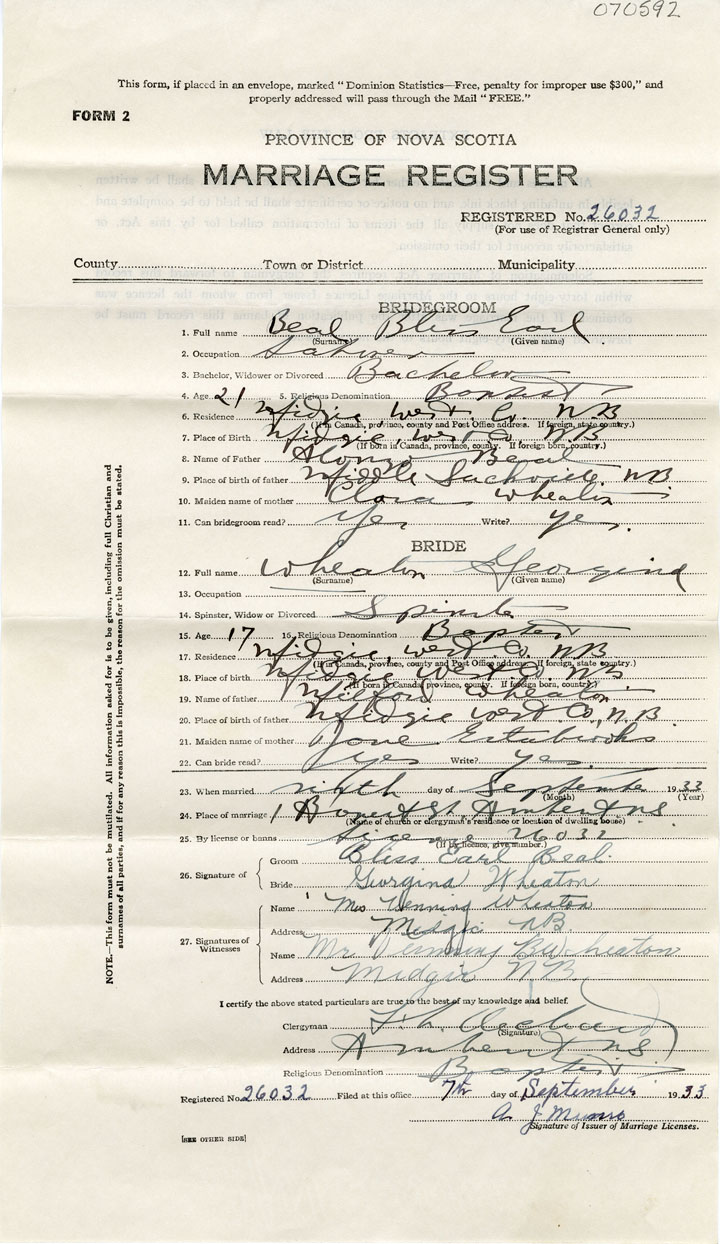 070592
This form, if placed in an envelope, marked "Dominion Statistics—Free, penalty for improper use $300," and
properly addressed will pass through the Mail "FREE."
FORM 2
PROVINCE OF NOVA SCOTIA
MARRIAGE REGISTER
REGISTERED No. 26032
(For use of Registrar General only)
County Town or District Municipality
BRIDEGROOM
1. Full name Beal Bliss Earl
(Surname) (Given name)
2. Occupation
3. Bachelor, Widower or Divorced Bachelor
4. Age 21 5. Religious Denomination Baptist
6. Residence Midgic West. Co. N.B
(If in Canada, province, county and Post Office address. If foreign, state country.)
7. Place of Birth Midgic, West Co. N.B.
(If born in Canada, province, county. If foreign born, country.)
8. Name of Father Alonzo Beal
9. Place of birth of father Middle Sackville. N.B.
10. Maiden name of mother Clara Wheaton
11. Can bridegroom read? Yes Write? Yes.
BRIDE
12. Full name Wheaton Georgina
(Surname) (Given name)
13. Occupation
14. Spinster, Widow or Divorced
15. Age 17 16. Religious Denomination Baptist
17. Residence Midgic, West. Co. N.B
(If in Canada, province, county and Post Office address. If foreign, state country.)
18. Place of birth Midgic West Co. N.B
(If born in Canada, province, county. If foreign born, country.)
19. Name of father Wheaton
20. Place of birth of father Midgic West Co, N.B.
21. Maiden name of mother Jane Estabrooks
22. Can bride read? Yes Write? Yes.
23. When married ninth day of September 1933
(Month) (Year)
24. Place of marriage Amherst NS
(Name of church or clergyman's residence or location of dwelling house)
25. By license or banns license 26032
(If by licence, give number.)
26. Signature of
Groom Bliss Earl Beal.
Bride Georgina Wheaton
27. Signatures of Witnesses
Name Mrs Venning Wheaton
Address Midgic N.B.
Name Mr Venning B Wheaton
Address Midgic N.B.
I certify the above stated particulars are true to the best of my knowledge and belief.
Clergyman
(Signature)
Address Amherst NS
Religious Denomination Baptist
Registered No. 26032 Filed at this office 7th day of September 1933
A J Munro
Signature of Issuer of Marriage Licenses.
[SEE OTHER SIDE]
NOTE.—This form must not be mutilated. All information asked for is to be given, including full Christian and
surnames of all parties, and if for any reason this is impossible, the reason for the omission must be stated.